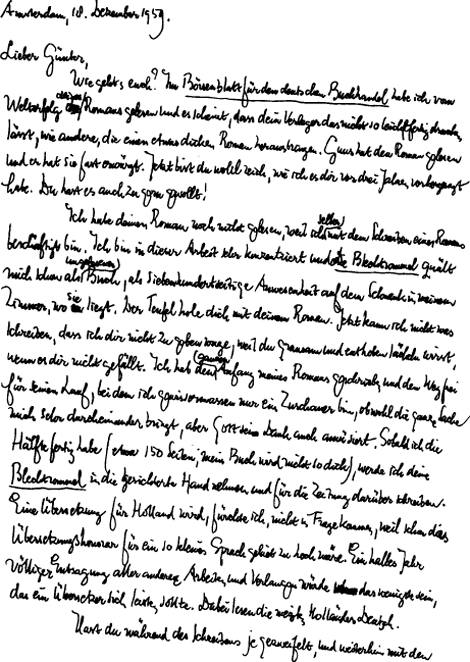 Amsterdam, 18. Dezember 1959.
Lieber Günter,
Wie geht's euch? Im Börsenblatt für den deutschen Buchhandel habe ich vom
Welterfolg deines Romans gelesen und es scheint, dass dein Verleger das nicht so leicht fertig
lässt, wie andere, die einen etwas dicken Roman herausbringen. Guus hat den Roman gelesen
und er hat sie fast erwürgt. Jetzt bist du wohl reich, wie ich es dir vor drei Jahren vorhergesagt
habe. Du hast es auch zu gern gewollt!
Ich habe deinen Roman noch nicht gelesen, weil ich selber mit dem Schreiben eines Romans
beschäftigt bin. Ich bin in dieser Arbeit sehr konzentriert und die Blechtrommel quält
mich schon als ungelesenes Buch, als siebenhundertseitige Anwesenheit auf dem Schrank in meinem
Zimmer, wo sie liegt. Der Teufel hole dich mit deinem Roman. Jetzt kann ich nicht was
schreiben, dass ich dir nicht zu geben wage, weil du grausam und enthoben lächeln wirst,
wenn es dir nicht gefällt. Ich habe den Anfang meines Romans geschrieben und den Weg frei
für seinen Lauf, bei dem ich gewissermassen nur ein Zuschauer bin, obwohl die ganze Sache
mich sehr durcheinander bringt, aber Gott sei Dank auch amüsiert. Sobald ich die
Hälfte fertig habe (etwa 150 Seiten, mein Buch wird nicht so dick), werde ich deine
Blechtrommel in die gerichtete Hand nehmen und für die Zeitung darüber schreiben.
Eine Übersetzung für Holland wird, fürchte ich, nicht in Frage kommen, weil schon das
Übersetzungshonorar für ein so kleines Sprachgebiet zu hoch wäre. Ein halbes Jahr
völliger Entsagung aller anderen Arbeiten und Vorlangen würde das wenigste sein,
das ein Übersetzer sich leisten sollte. Dabei lesen die meisten Holländer Deutsch.
Hast du während des Schreibens je gezweifelt, und weiterhin mit dem